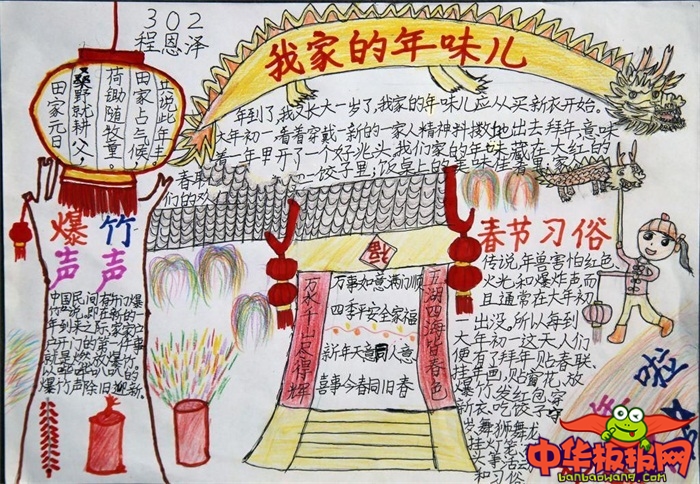 302
程恩泽
我家的年味儿
年到了,我又长大一岁了,我家的年味儿应从买新衣开始。
大年初一看着穿戴一新的一家人精神抖擞地出去拜年,意味
着一年里开了一个好兆头。我们家的年味藏在大红的
春联
饺子里;饭桌上的美味佳
田家元日
桑野就耕父,
荷锄随牧童。
田家占气候,
共说此年丰
爆竹
声声
中国民间有开门爆
竹一说。即在新的一
年到来之际,家家户
户开门的第一件事
就是燃放爆竹,
以
爆竹声除旧迎新。
福
万水千山尽得辉
万事如意满门顺
四季平安全家福
新年天意同人意
喜事今春同旧春
五湖四海皆春色
春节习俗
传说,年兽害怕红色、
火光和爆炸声,而
且通常在大年初
一出没,所以每到
大年初一这天人们
便有了拜年、贴春联、
挂年画、贴窗花、放
爆竹、发红包、穿
新衣、吃饺子、守
岁、舞狮舞龙、
挂灯笼
头等活动
和习俗
啦
中华板报网
banbaowang.com